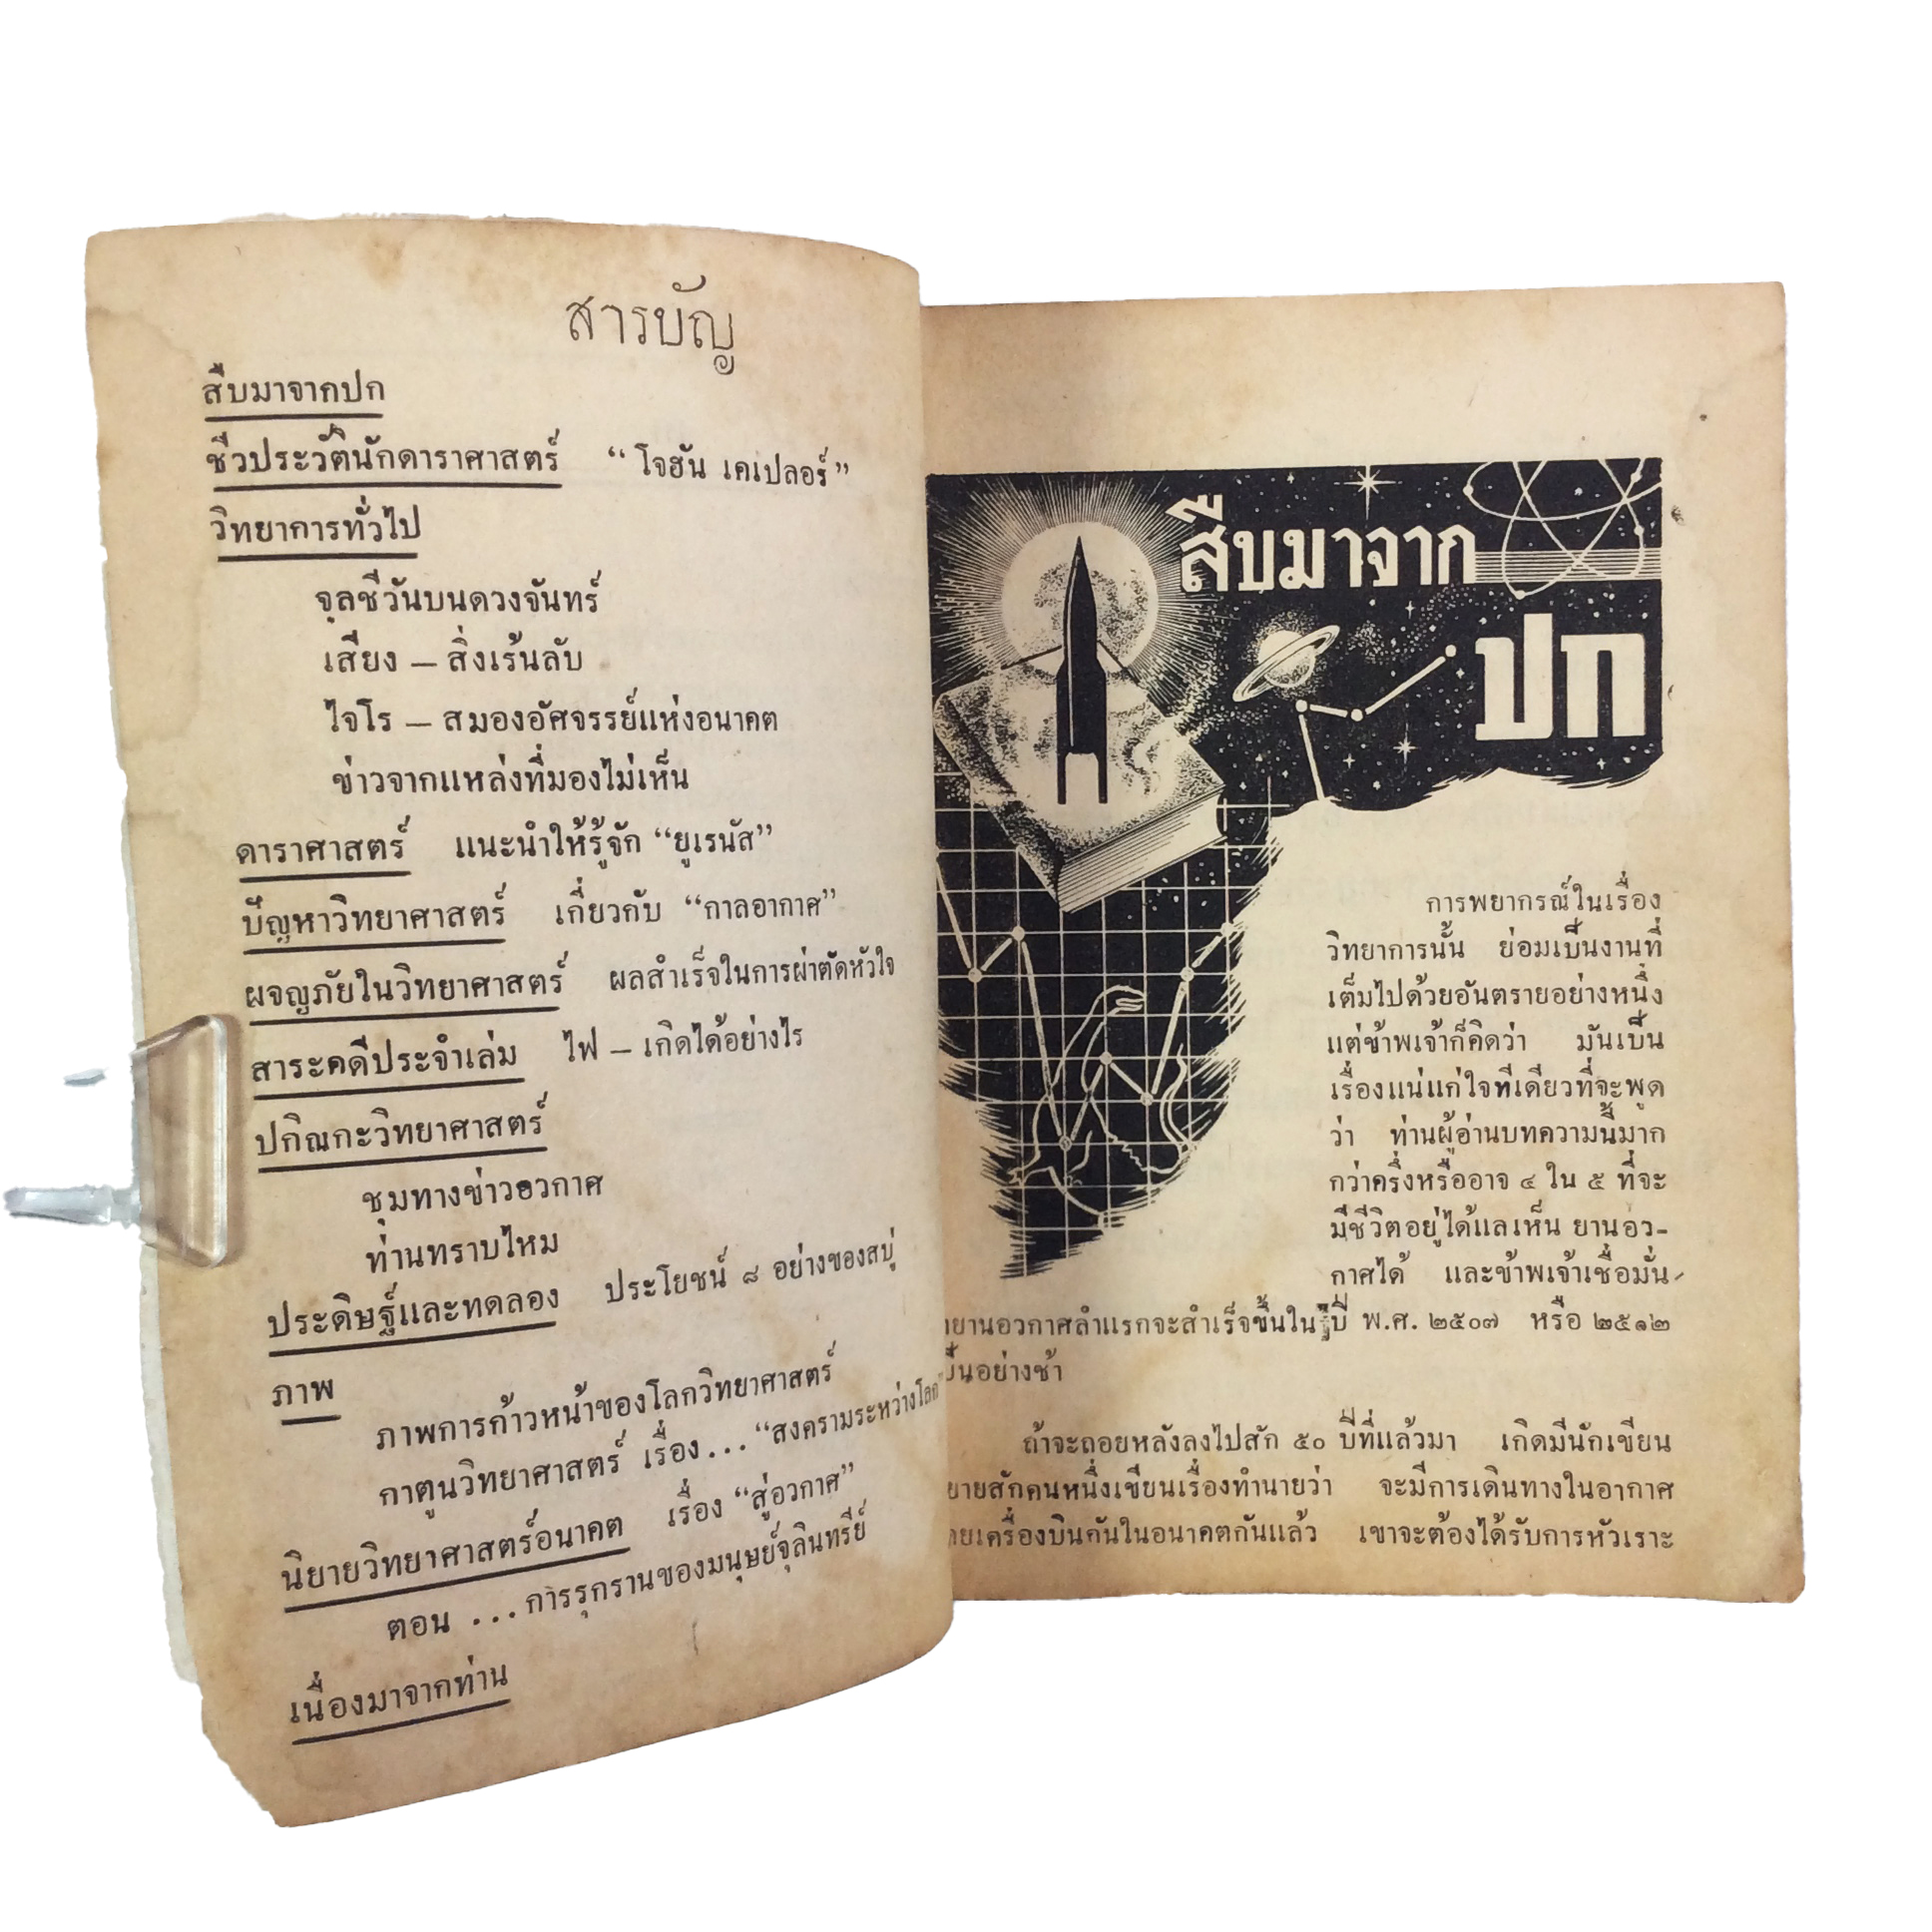 สารบัญ
สืบมาจากปก
ชีวประวัตินักดาราศาสตร์ “ โจฮัน เคเปลอร์ ”
วิทยาการทั่วไป
จุลชีวันบนดวงจันทร์
เสียง – สิ่งเร้นลับ
ไจโร – สมองอัศจรรย์แห่งอนาคต
ข่าวจากแหล่งที่มองไม่เห็น
ดาราศาสตร์ แนะนำให้รู้จัก “ยูเรนัส”
ปัญหาวิทยาศาสตร์ เกี่ยวกับ “กาลอากาศ”
ผจญภัยในวิทยาศาสตร์ ผลสำเร็จในการผ่าตัดหัวใจ
สาระคดีประจำเล่ม ไฟ – เกิดได้อย่างไร
ปกิณกะวิทยาศาสตร์
ชุมทางข่าวอวกาศ
ท่านทราบไหม
ประดิษฐ์และทดลอง ประโยชน์ ๘ อย่างของสบู่
ภาพ
ภาพการก้าวหน้าของโลกวิทยาศาสตร์
กาตูนวิทยาศาสตร์ เรื่อง... “สงครามระหว่างโลก”
นิยายวิทยาศาสตร์อนาคต เรื่อง “สู่อวกาศ”
ตอน ...การรุกรานของมนุษย์จุลินทรีย์
เนื่องมาจากท่าน
สืบมาจาก
ปก
การพยากรณ์ในเรื่อง
วิทยาการนั้น ย่อมเป็นงานที่
เต็มไปด้วยอันตรายอย่างหนึ่ง
แต่ข้าพเจ้าก็คิดว่า มันเป็น
เรื่องแน่แก่ใจทีเดียวที่จะพูด
ว่า ท่านผู้อ่านบทความนี้มาก
กว่าครึ่งหรืออาจ ๔ ใน ๕ ที่จะ
มีชีวิตอยู่ได้แลเห็น ยานอว-
กาศได้ และข้าพเจ้าเชื่อมั่น
ยานอวกาศลำแรกจะสำเร็จขึ้นในปี พ.ศ. ๒๕๐๗ หรือ ๒๕๑๒
เป็นอย่างช้า
ถ้าจะถอยหลังลงไปสัก ๕๐ ปีที่แล้วมา เกิดมีนักเขียน
สักคนหนึ่งเขียนเรื่องทำนายว่า จะมีการเดินทางในอากาศ
เครื่องบินกันในอนาคตกันแล้ว เขาจะต้องได้รับการหัวเราะ